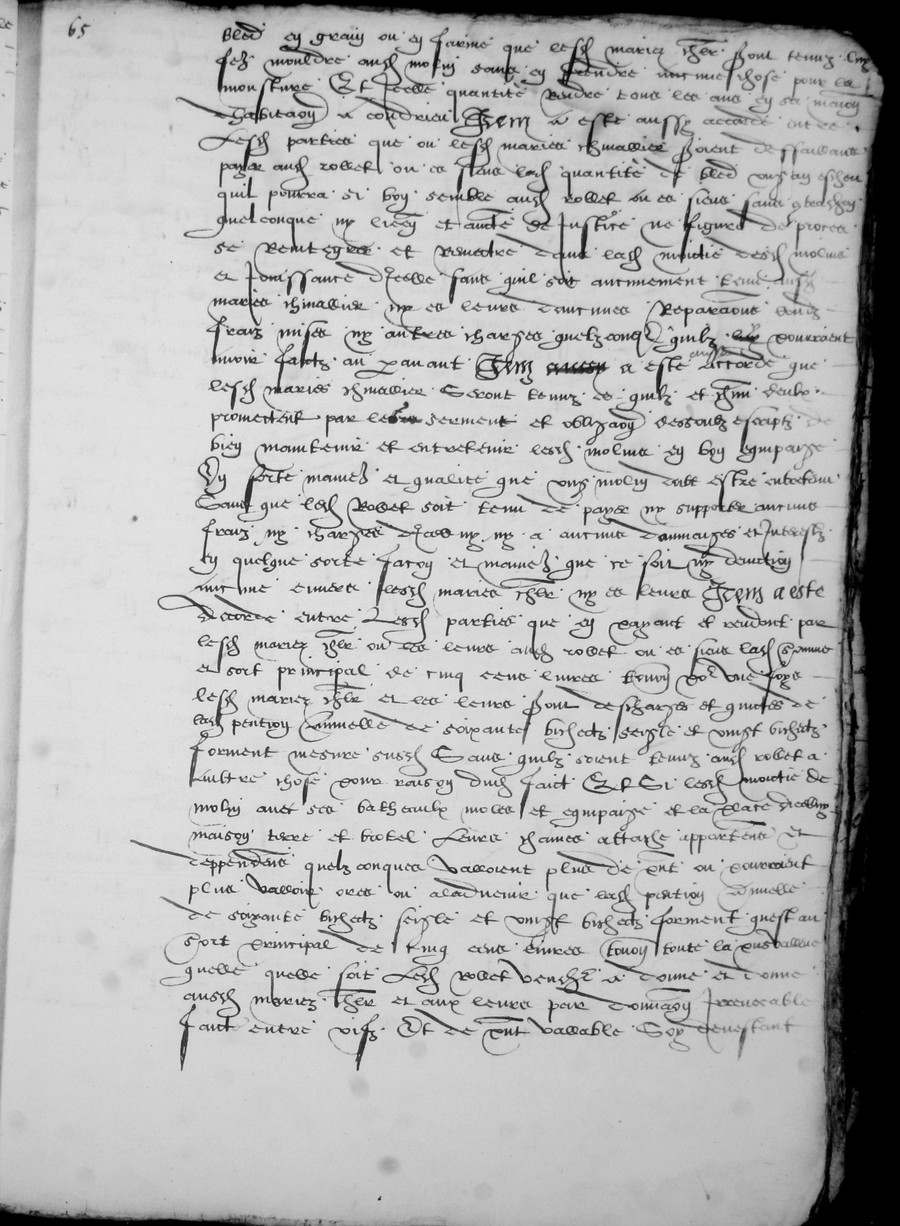 65
bled en grain ou en farine que lesd mariez chlr seront tenuz luy
fere mouldre aud molin sans en prendre aucune chose pour la
mousture Et Icelle quantité rendre tous les ans en sa maison
dhabitaon a condrieu Item a esté aussy accordé entre
Lesd parties que ou lesd mariés chivallier seroient deffaillans
payer aud rollet ou es siens lad quantité de bled ung an escheu
quil pourra si bon semble aud rollet ou es siens sans
quelconque ny licen et aucté de Justice ne figure de proces
se reintegrer et remectre dans lad moitié desd molins
et Jouissance dIcelle sans quil soit aucunement tenu ausd
mariés chivallier ny es leurs daucunes Reparaons
fraiz mises ny autres charges quelzconq quilz pourroient
avoir faictz au paravant Item a esté aussi accordé que
lesd mariés chivallier Seront tenuz
promectent par leur serment et obligaon dessoubz escriptz de
bien maintenir et entretenir lesd molins en bon equipaige
En sorte manie et qualité que ung molin doibt estre entretenu
Sans que led Rollet soit tenu de payer ny supporter aucuns
fraiz ny charges dIceulx ny a aucuns dommaiges et Interestz
en quelque sorte facon et manie que ce soit ny
aucune envers lesd mariés chlr ny es leurs Item a esté
Accordé entre Lesd parties que en payant et rendant par
lesd mariez chlr ou les leurs aud rollet ou es siens lad somme
et sort principal de cinq cens livres tournoy por une foys
lesd mariez chlr et les leurs seront descharges et quictes de
lad pention Annuelle de soixante bichectz seigle et vingt bichectz
forment mesure susd Sans quilz soient tenuz aud rollet a
aultre chose pour raison dud faict Et Si lesd moictie de
molin avec ses batheaulx moles et equipaige et la place dicelluy
maison terre et Leurs chaines attache appartens et
deppendens quelzconques valloient plus de pnt ou pourroient
plus valloir ores ou aladvenir que lad pention Annuelle
de soixante bichectz seigle et vingt bichectz forment quest au
Sort principal de cinq cens livres tournoy toute la plusvallue
quelle quelle soit Led rollet vendeur a donné et donne
ausd mariez chlr et aux leurs par donnaon Irrevocable
faicte entre vifz Et de pnt vallable Soy devestant